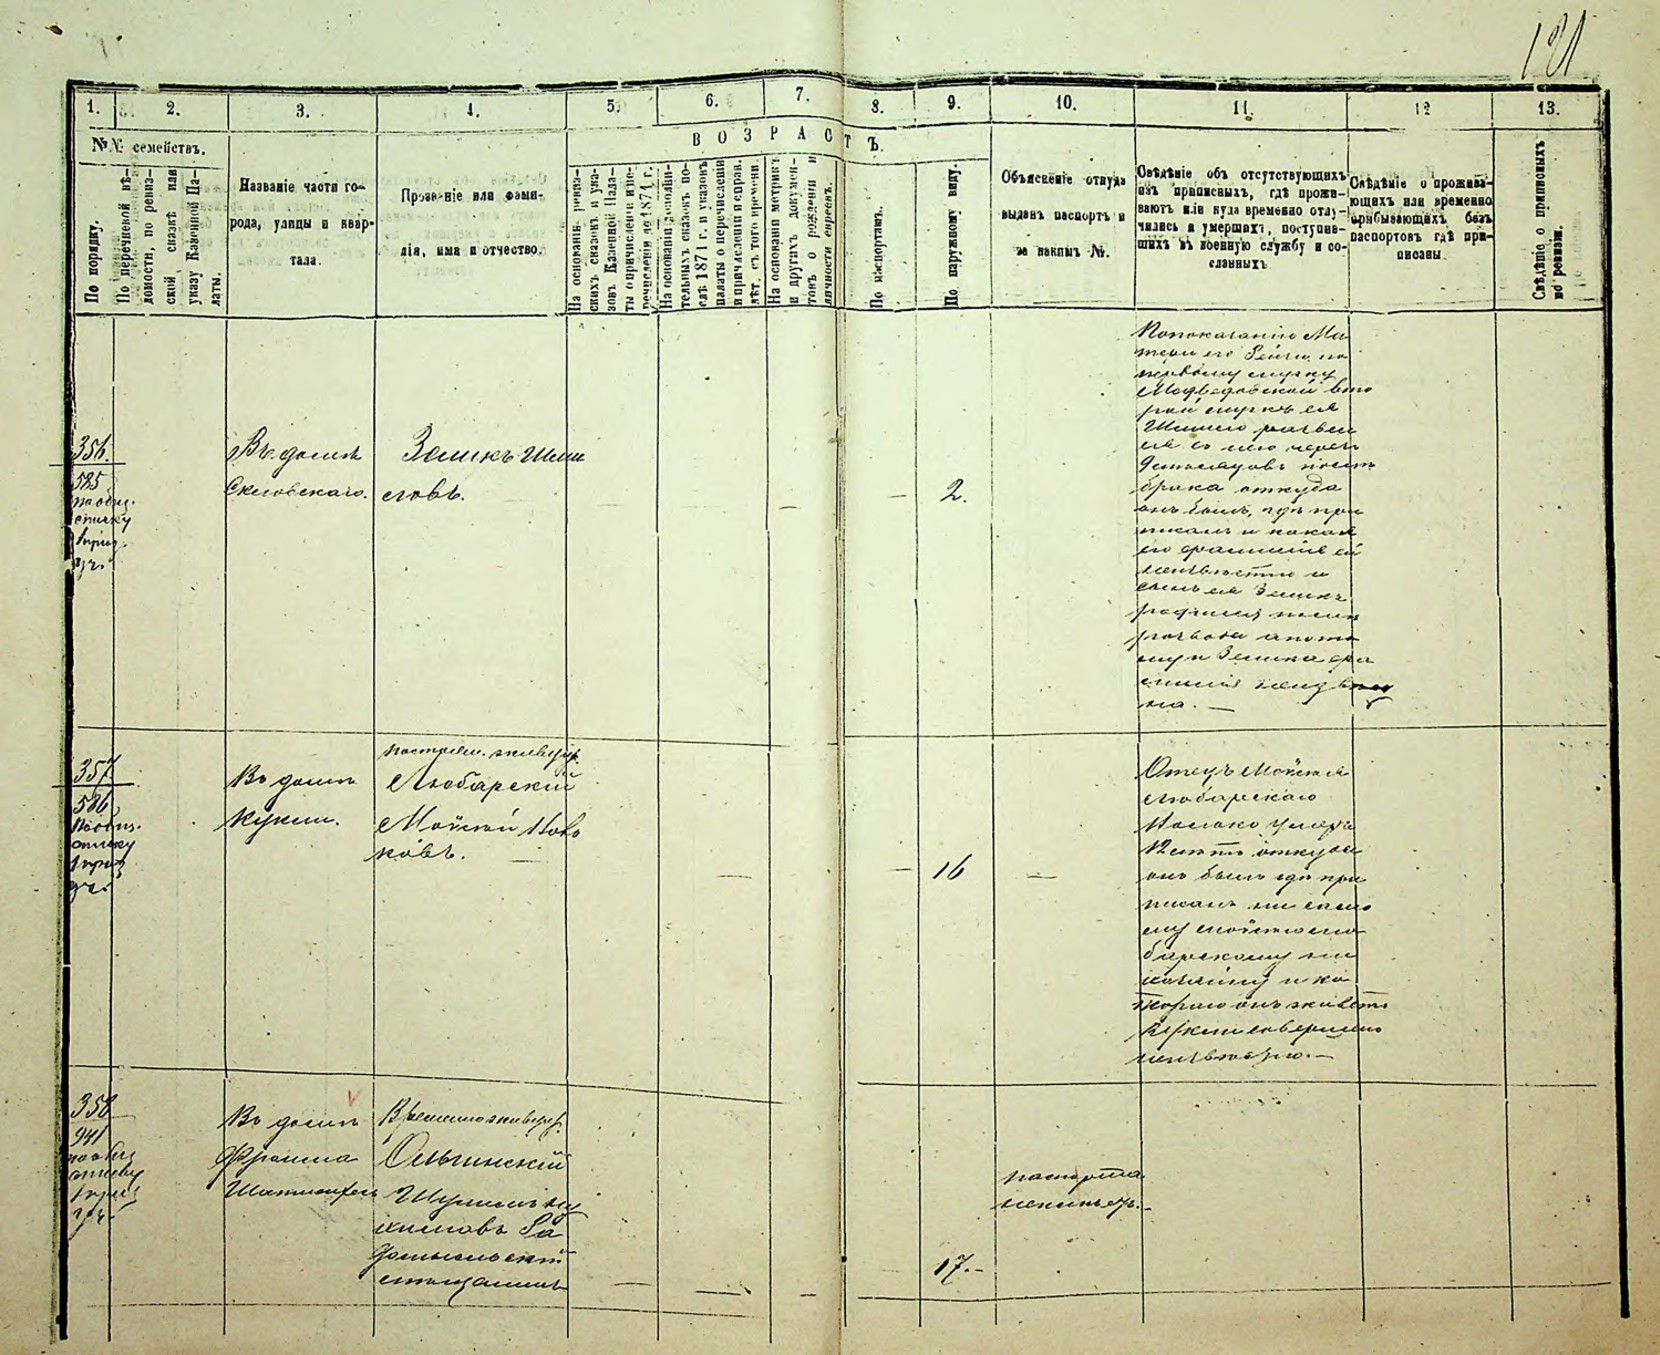 181
1.
2.
3.
4.
5.
6.
7.
8.
9.
10.
11.
12
13.
№№ семействъ.
По порядку.
По перечневой вѣ-
домости, по ревиз-
ской сказкѣ или
указу Казенной Па-
латы.
Названіе части го-
рода, улицы и квар-
тала.
Прозваніе или фами-
лія, имя и отчество.
ВОЗРАСТЪ.
На основаніи ревиз-
скихъ сказокъ и ука-
зовъ Казенной Пала-
ты о причисленіи и пе-
речисленіи до 1874 г.
На основаніи дополни-
тельныхъ сказокъ по-
слѣ 1874 г. и указовъ
палаты о перечисленіи
и причисленіи и справ.
лѣт. съ того времени.
На основаніи метрикъ
и другихъ докумен-
товъ о рожденіи и
личности евреевъ.
По паспортамъ.
По наружному виду.
Объясненіе откуда
выданъ паспортъ и
за какимъ №.
Свѣдѣніе объ отсутствующихъ
изъ приписныхъ, гдѣ прожи-
ваютъ или куда временно отлу-
чились и умершихъ, поступив-
шихъ въ военную службу и со-
сланныхъ
Свѣдѣніе о прожива-
ющихъ или временно
прибывающихъ безъ
паспортовъ гдѣ при-
писаны
Свѣдѣніе о приписныхъ
по ревизіи.
356.
585
по обиз.
списку
Въ домѣ
Скловскаго.
Зеликъ Шми
еловъ.
2.
По показанію Ма
тери его Рейзи по
первому мужу
Медвѣдовской вто
рой мужъ ея
Шмило развел
ся съ нею черезъ
брака откуда
онъ былъ, гдѣ при
писанъ и какая
его фамилія ей
неизвѣстно и
сынъ ея Зеликъ
родился послѣ
развода а пото
му и Зелика фа
милія неизвѣст
на.
357
586
списку
Въ домѣ
Кукли.
живущ.
Любарскій
Мойсей Ново
ковъ.
16
Отецъ Мойсея
Любарскаго
умеръ
откуда
онъ былъ гдѣ при
писанъ ни само
му Мойсею Лю
барскому ни
хозяину у ко
тораго онъ живетъ
Кукли совершенно
неизвѣстно.
358
941
списку
Въ домѣ
Франца
Временно живущ.
Ольшинскій
Шулимъ Ну
химовъ Ра
домысльскій
мѣщанинъ
17.
паспорта
неимѣетъ.